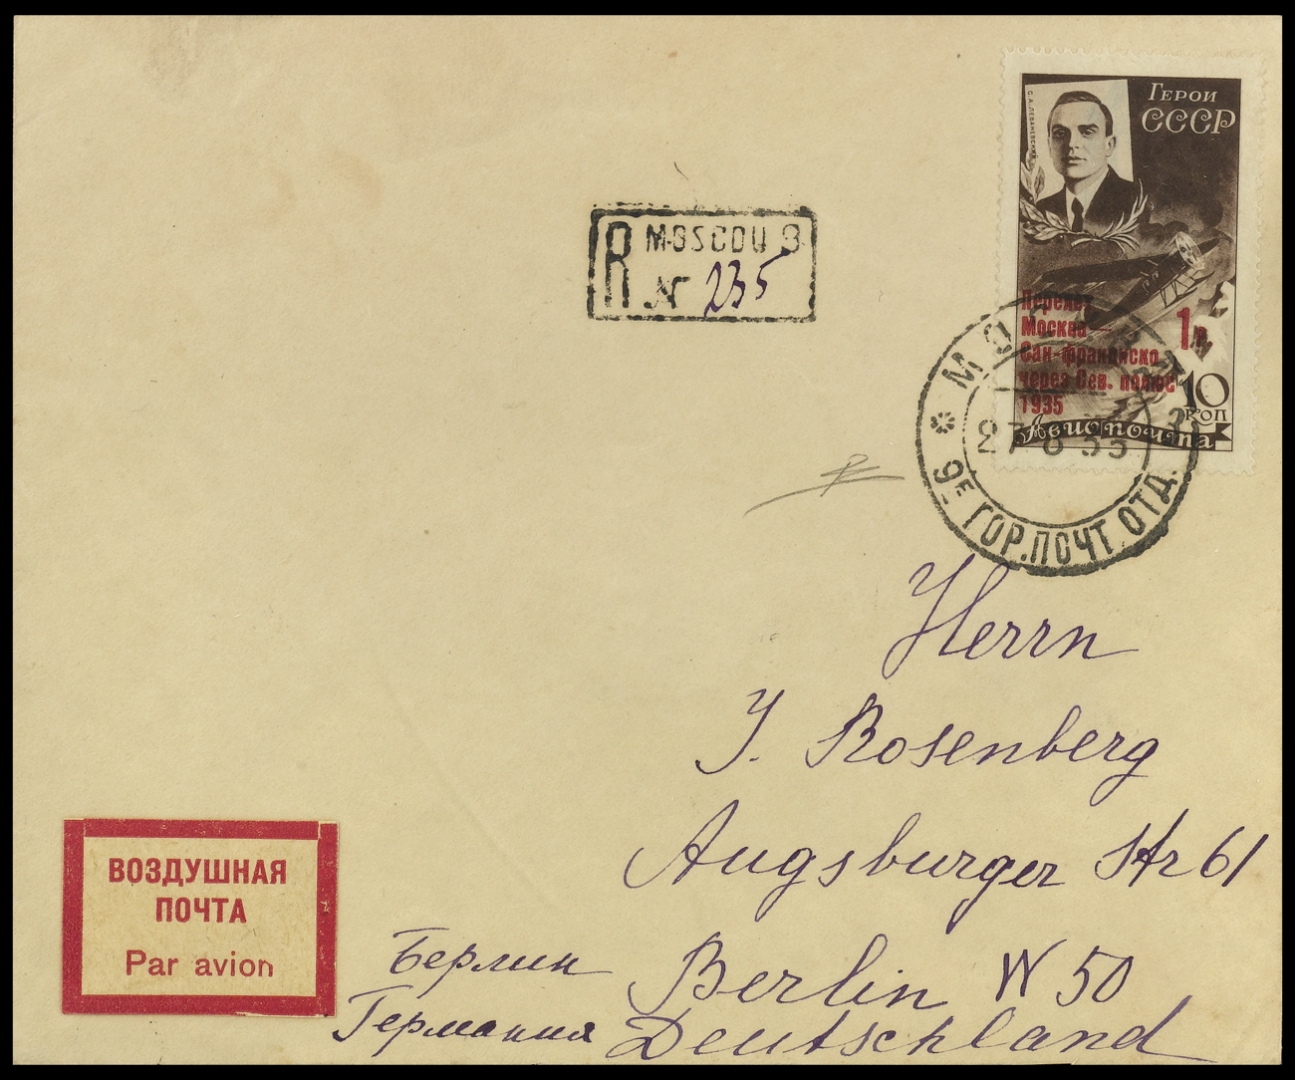 С.А.ЛЕВАНЕВСКИЙ
ГЕРОИ
СССР
R MOSCOU 9
№ 235
Перелет
Москва—
Сан-франциско
через Сев. полюс
1935
1р.
10
КОП
Авиопочта
МОСКВА
27 8 35
9Е ГОР.ПОЧТ.ОТД.
Herrn
J. Rosenberg
Augsburger Str 61
Berlin W 50
Deutschland
Берлин
Германия
ВОЗДУШНАЯ
ПОЧТА
Par avion